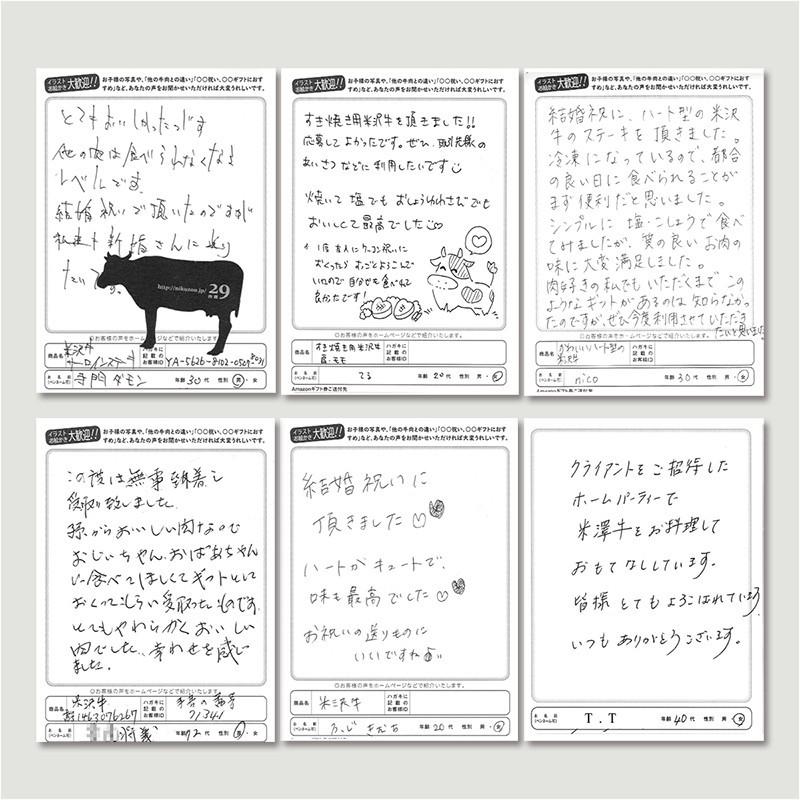 イラスト
お絵かき 大歓迎!!
お子様の写真や、「他の牛肉との違い」「〇〇祝い、〇〇ギフトにおす
すめ」など、あなたの声をお聞かせいただければ大変うれしいです。
とてもおいしかったです
他の肉は食べられなくなる
レベルです。
結婚祝いで頂いたのですが
新婚さんに送り
たいです。
http://nikuzou.jp/ 29
〇お客様の声をホームページなどで紹介いたします。
商品名 米沢牛
サーロインステーキ
ハガキに
記載の
お客様ID
YA-5626-8102-0529-8031
お名前
(ペンネーム可)
寺門ダモン
年齢 30代 性別 男・女
イラスト
お絵かき 大歓迎!!
お子様の写真や、「他の牛肉との違い」「〇〇祝い、〇〇ギフトにおす
すめ」など、あなたの声をお聞かせいただければ大変うれしいです。
すき焼き用米沢牛を頂きました!!
応募してよかったです。ぜひ、取引先様の
あいさつなどに利用したいです
焼いて塩でもおしょうゆわさびでも
おいしくて最高でした
〇お客様の声をホームページなどで紹介いたします。
商品名 すき焼き用米沢牛
肩・モモ
ハガキに
記載の
お客様ID
お名前
(ペンネーム可)
てる
年齢 20代 性別 男・女
Amazonギフト券ご送付先
イラスト
お絵かき 大歓迎!!
お子様の写真や、「他の牛肉との違い」「〇〇祝い、〇〇ギフトにおす
すめ」など、あなたの声をお聞かせいただければ大変うれしいです。
結婚祝に、ハート型の米沢
牛のステーキを頂きました。
冷凍になっているので、都合
の良い日に食べられることが
まず便利だと思いました。
シンプルに塩・こしょうで食べ
てみましたが、質の良いお肉の
味に大変満足しました。
肉好きの私でもいただくまでこの
ようなギフトがあるのは知らなかっ
たのですが、ぜひ今度利用させていただき
たいと思いました
〇お客様の声をホームページなどで紹介いたします。
商品名 かわいいハート型の
米沢牛
ハガキに
記載の
お客様ID
お名前
(ペンネーム可)
nico
年齢 30代 性別 男・女
イラスト
お絵かき 大歓迎!!
お子様の写真や、「他の牛肉との違い」「〇〇祝い、〇〇ギフトにおす
すめ」など、あなたの声をお聞かせいただければ大変うれしいです。
この度は無事到着し
受取り致しました。
孫からおいしい肉なので
おじいちゃん、おばあちゃん
に食べてほしくてギフトとして
おくってもらい受取ったものです。
とてもやわらかくおいしい
肉でした。幸わせを感じ
ました。
〇お客様の声をホームページなどで紹介いたします。
商品名 米沢牛
ハガキに
記載の
お客様ID
71341
お名前
(ペンネーム可)
年齢 72代 性別 男・女
結婚祝いに
頂きました
ハートがキュートで、
味も最高でした
お祝いの送りものに
いいですね
〇お客様の声をホームページなどで紹介いたします。
商品名 米沢牛
ハガキに
記載の
お客様ID
お名前
(ペンネーム可)
年齢 20代 性別 男・女
クライアントをご招待した
ホームパーティーで
米澤牛をお料理して
おもてなししています。
皆様とてもよろこばれています
いつもありがとうございます。
お名前
(ペンネーム可)
T.T
年齢 40代 性別 男・女